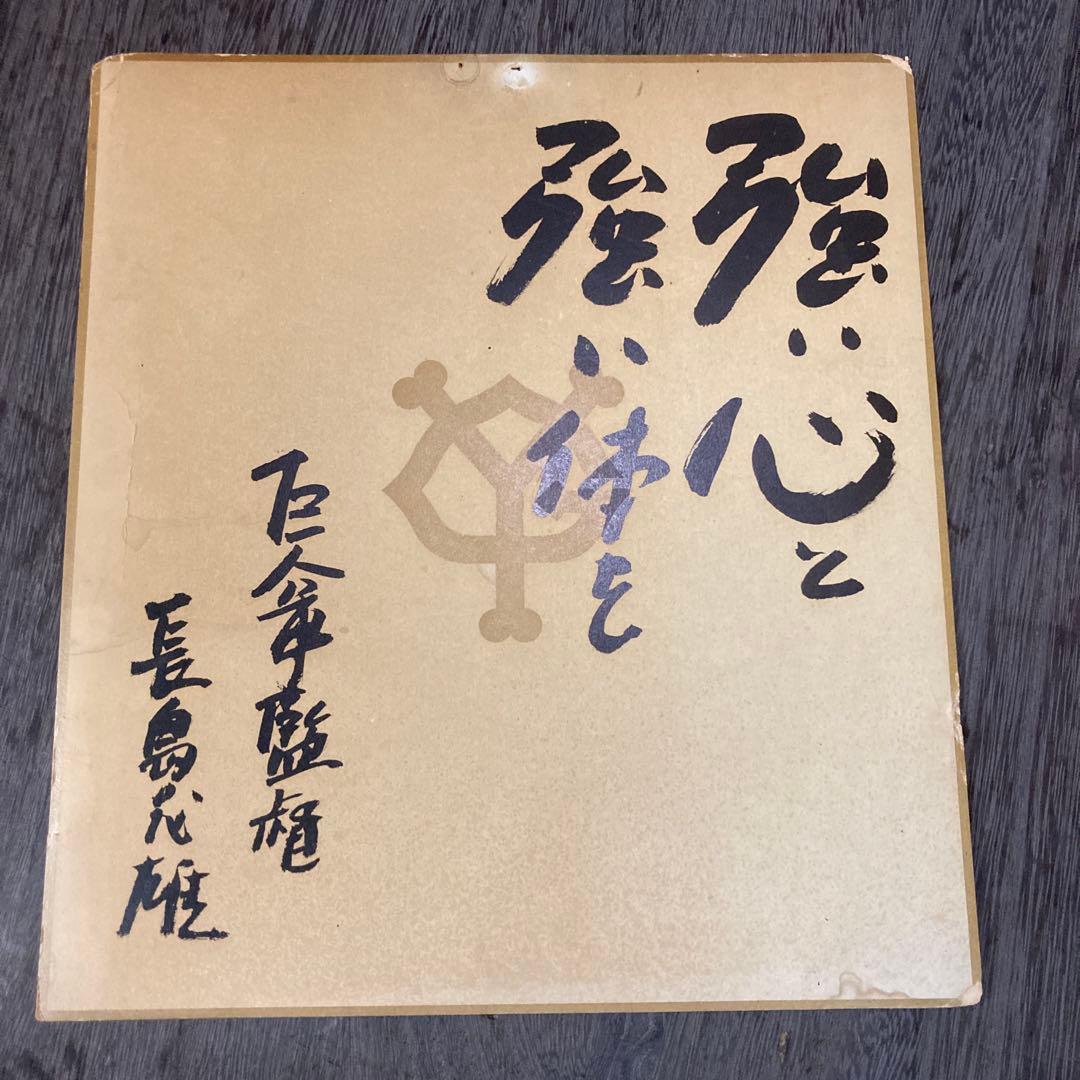 強い心と
強い体を
巨人軍監督
長島茂雄